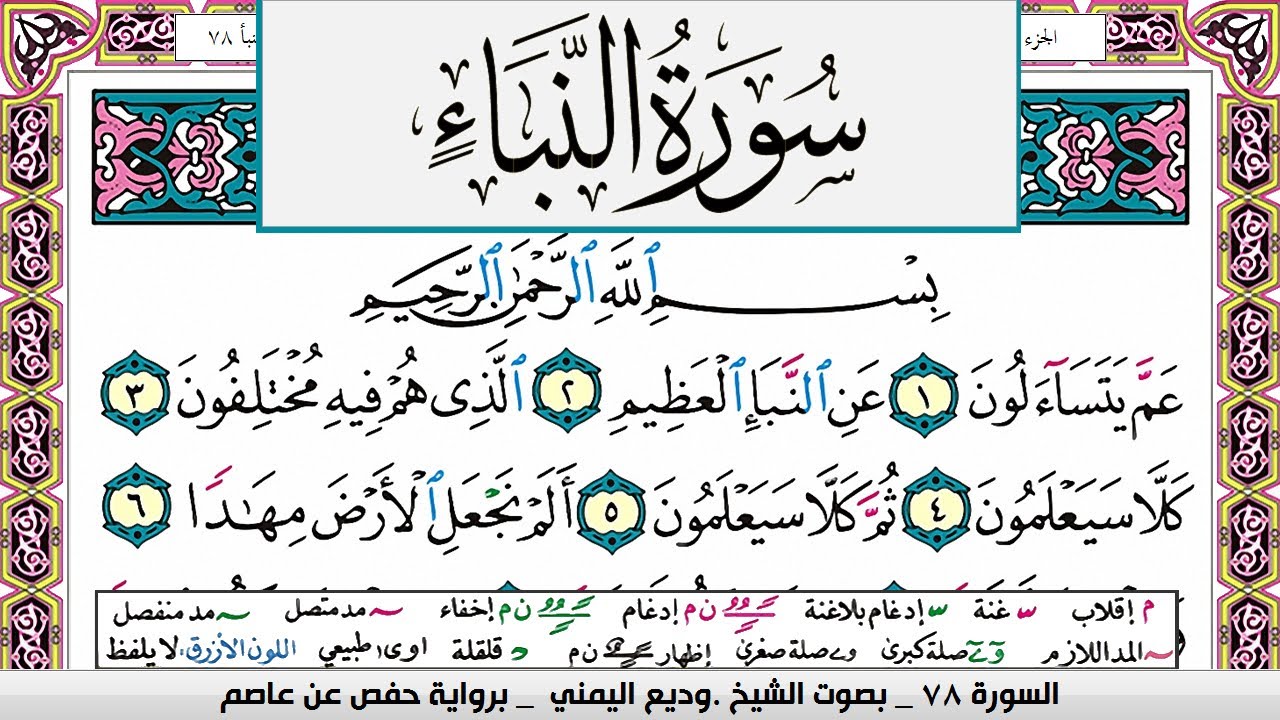 الجزء
نبأ ٧٨
سُورَةُ النَّبَاءِ
بِسْمِ ٱللَّهِ ٱلرَّحْمَٰنِ ٱلرَّحِيمِ
عَمَّ يَتَسَآءَلُونَ ١ عَنِ ٱلنَّبَإِ ٱلْعَظِيمِ ٢ ٱلَّذِى هُمْ فِيهِ مُخْتَلِفُونَ ٣
كَلَّا سَيَعْلَمُونَ ٤ ثُمَّ كَلَّا سَيَعْلَمُونَ ٥ أَلَمْ نَجْعَلِ ٱلْأَرْضَ مِهَٰدًا ٦
م إقلاب غنة إدغام بلاغنة ن م إدغام ن م إخفاء مد متصل مد منفصل
المد اللازم صلة كبرى صلة صغرى إظهار ن م قلقلة اوى طبيعي اللون الأزرق: لا يلفظ
السورة ٧٨ _ بصوت الشيخ .وديع اليمني _ برواية حفص عن عاصم